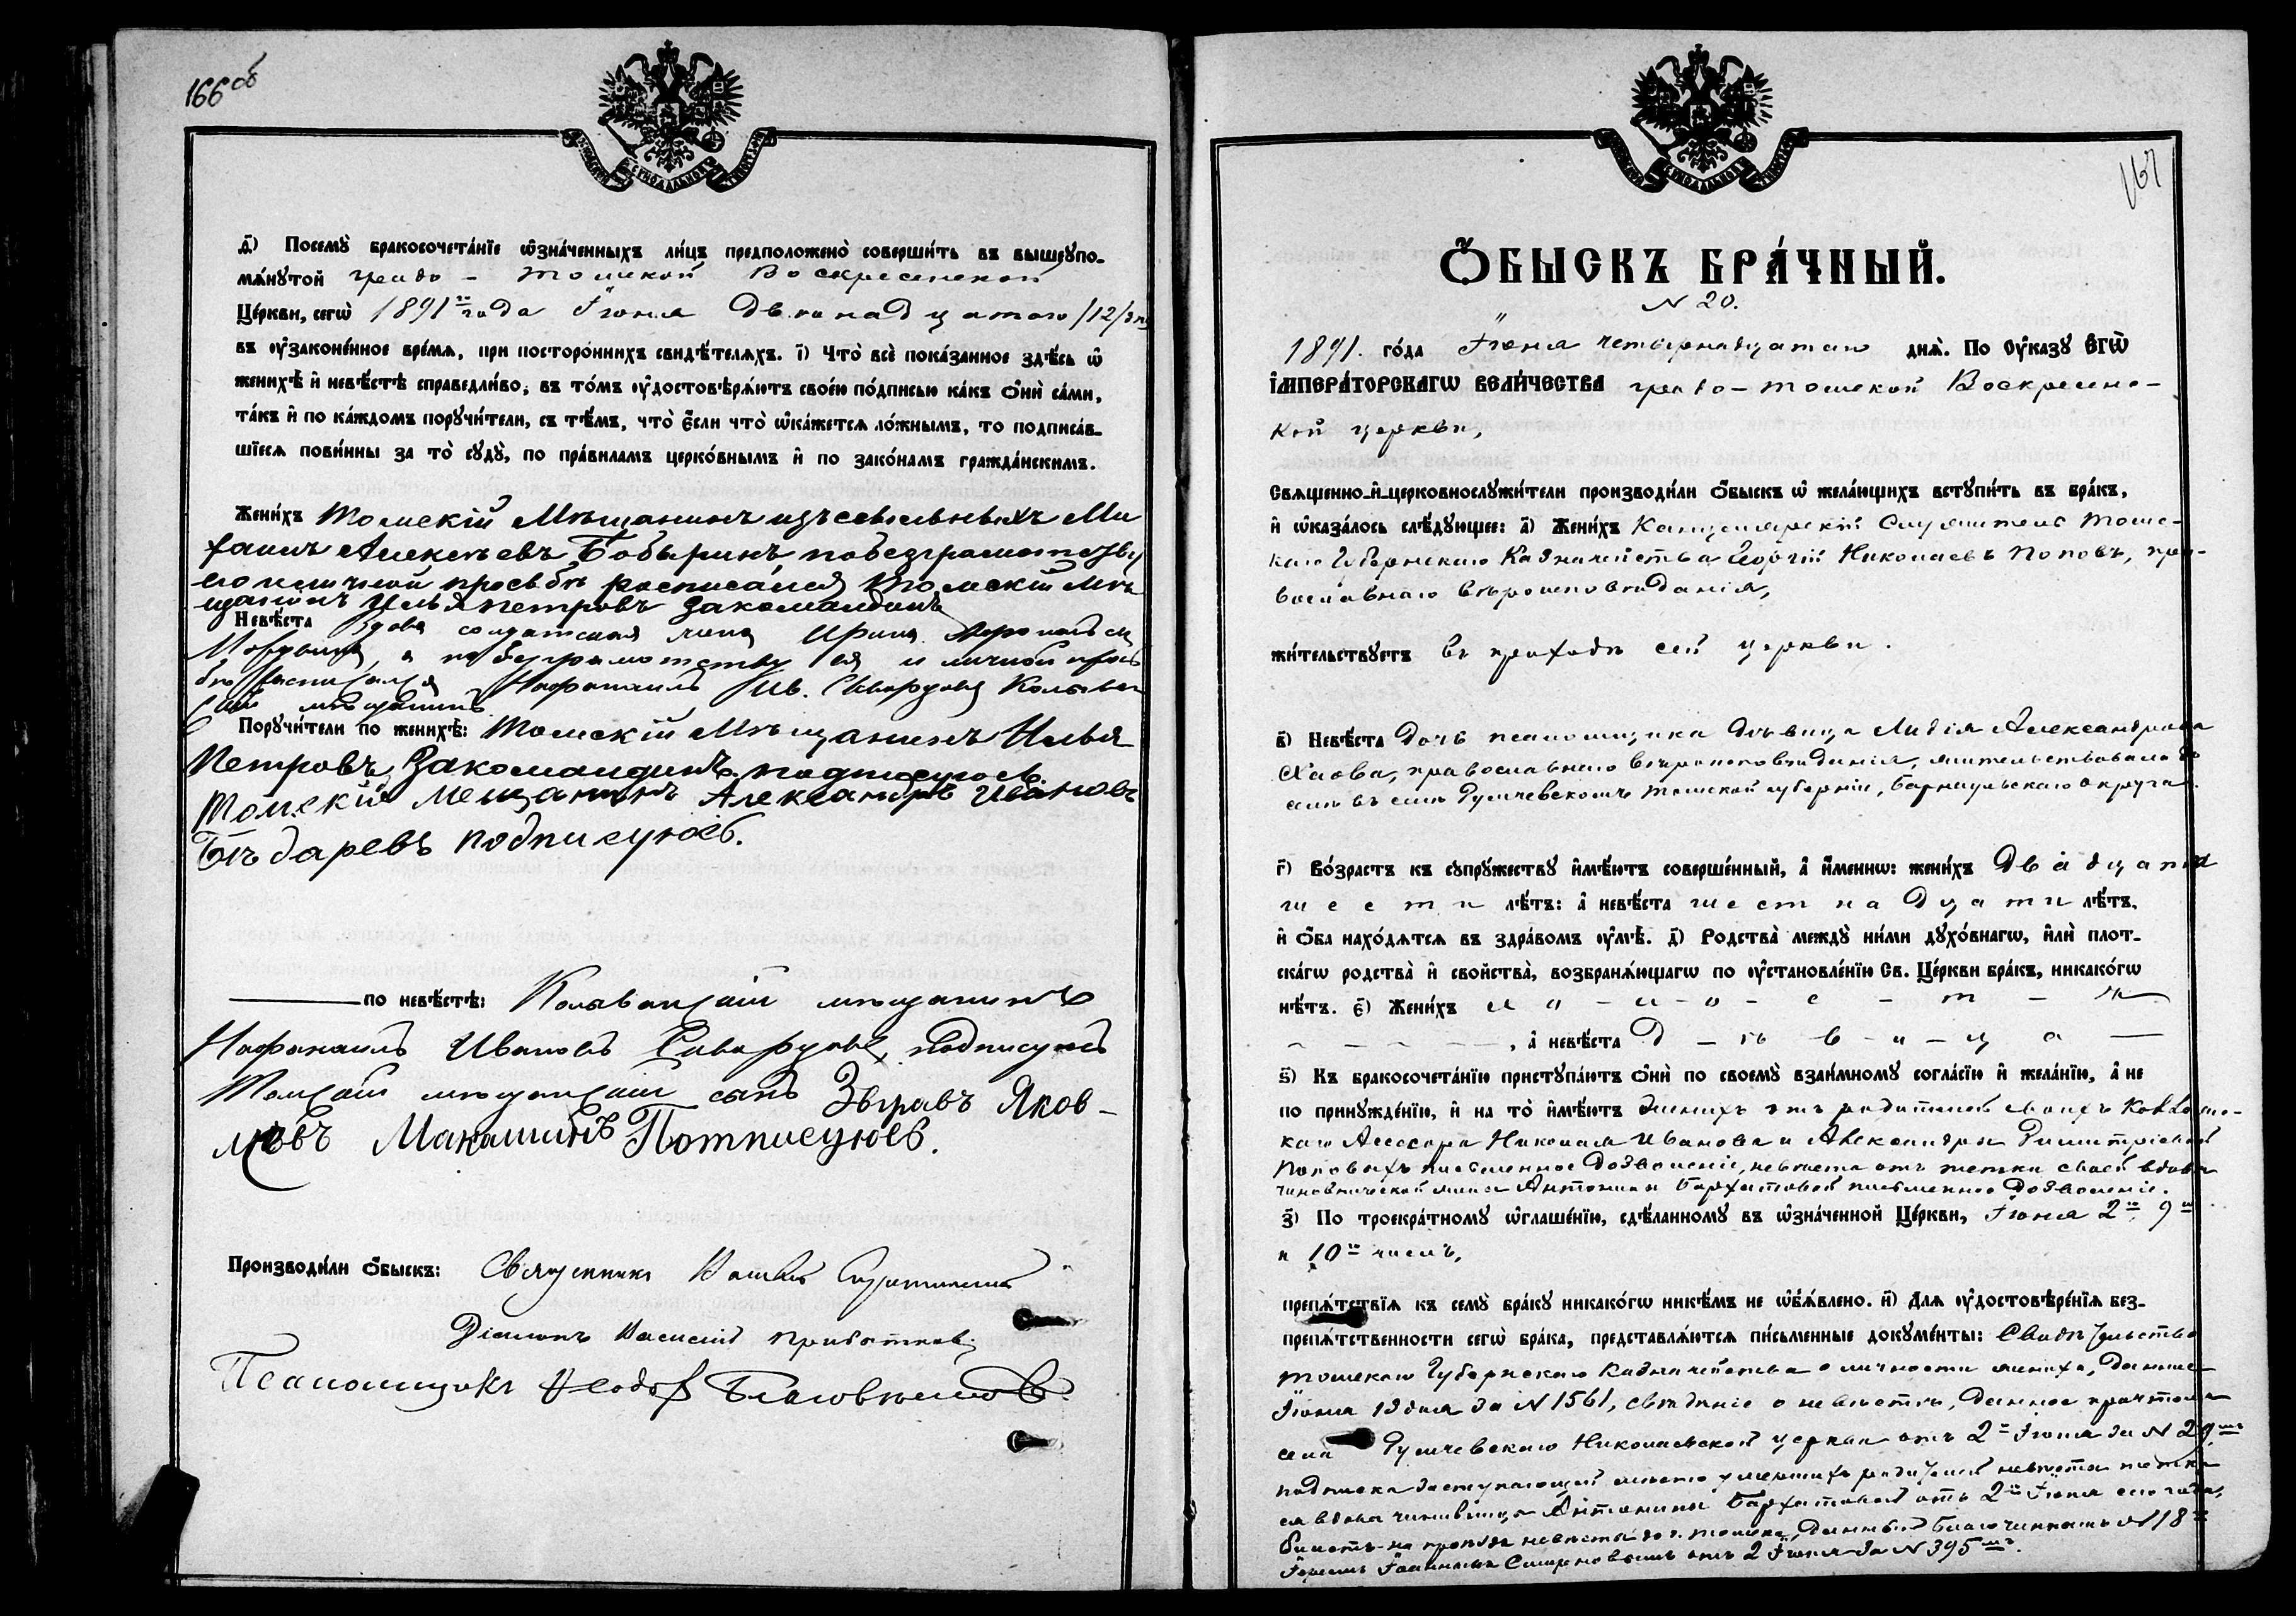 166 об
д҃) Посемꙋ̀ бракосочета́нїе ѡ҆зна́ченныхъ ли́цъ предположено̀ соверши́ть въ вышеꙋпо-
мѧ́нꙋтой градо - Томской Воскресенской
Це́ркви, сегѡ̀ 1891 года Іюня двенадцатаго /12/ дня
въ ᲂу҆зако́ненное вре́мѧ, при посторо́ннихъ свидѣ́телѧхъ. і҃) Что̀ всѐ пока́занное здѣ́сь ѡ҆
женихѣ̀ и҆ невѣ́стѣ справедли́во, въ то́мъ ᲂу҆достовѣрѧ́ютъ свое́ю по́дписью ка́къ ѻ҆нѝ са́ми,
та́къ и҆ по ка́ждомъ порꙋчи́тели, съ тѣ́мъ, что̀ є҆́сли что̀ ѡ҆ка́жетсѧ ло́жнымъ, то подписа́в-
шїесѧ пови́нны за то̀ сꙋдꙋ̀, по пра́виламъ церко́внымъ и҆ по зако́намъ гражда́нскимъ.
Жени́хъ Томскій Мѣщанинъ изъ ссыльныхъ Ми
хаилъ Алексѣевъ Бобыринъ, по безграмотству
его и личной просьбѣ росписался Томскій Мѣ
щанинъ Илья Петровъ Закомалдинъ
Невѣ́ста Вдова солдатская жена Ирина
а по безграмотству ея и личной прось
бѣ росписался Нафанаилъ Ив. Колыван
скій мѣщанинъ
Порꙋчи́тели по женихѣ̀: Томскій Мѣщанинъ Илья
Петровъ Закомалдинъ подписуюсь.
Томскій мещанинъ Александръ Ивановъ
Бѣдаревъ подписуюсь.
по невѣ́стѣ: Колыванскій мѣщанинъ
Нафанаилъ Ивановъ подписуюсь
Томскій мѣщанскій сынъ Яков-
лѣвъ Макашинъ Потписуюсь.
Производи́ли ѻ҆́быскъ: Священникъ
Діаконъ Василій Прибытковъ
Псаломщикъ Ѳеодоръ
167
Ѻ҆́БЫСКЪ БРА́ЧНЫЙ.
N 20.
1891. го́да Іюня четырнадцатаго днѧ̀. По Оу҆ка́зꙋ Є҆ГѠ̀
І҆МПЕРА́ТОРСКАГѠ ВЕЛИ́ЧЕСТВА градо - Томской Воскресенс-
кой церкви,
Свѧщенно-и҆-церковнослꙋжи́тели производи́ли ѻ҆́быскъ ѡ҆ жела́ющихъ встꙋпи́ть въ бра́къ,
и҆ ѡ҆каза́лось слѣ́дꙋющее: а҃) Жени́хъ Канцелярскій Служитель Томс-
каго Губернскаго Казначейства Георгій Николаевъ Поповъ, пра-
вославнаго вѣроисповѣданія,
жи́тельствꙋетъ въ приходѣ сей церкви.
в҃) Невѣ́ста Дочь псаломщика дѣвица Лидія Александрова
православнаго вѣроисповѣданія, жительствовала до
села въ селѣ Томской губерніи, Барнаульскаго округа.
г҃) Во́зрастъ къ сꙋпрꙋ́жествꙋ и҆мѣ́ютъ соверше́нный, а҆ и҆́меннѡ: жени́хъ двадцати
шести лѣ́тъ: а҆ невѣ́ста шестнадцати лѣ́тъ,
и҆ ѻ҆́ба нахо́дѧтсѧ въ здра́вомъ ᲂу҆мѣ̀. д҃) Родства̀ междꙋ̀ ни́ми дꙋхо́внагѡ, и҆лѝ плот-
ска́гѡ родства̀ и҆ сво́йства̀, возбранѧ́ющагѡ по ᲂу҆становле́нїю Св. Це́ркви бра́къ, никако́гѡ
нѣ́тъ. є҃) Жени́хъ холостъ
, а҆ невѣ́ста д - ѣ - в - и - ц - а
ѕ҃) Къ бракосочета́нїю пристꙋпа́ютъ ѻ҆нѝ по своемꙋ̀ взаи́мномꙋ согла́сїю и҆ жела́нїю, а҆ не
по принꙋжде́нїю, и҆ на то̀ и҆мѣ́ютъ женихъ отъ родителей своихъ Коллежс-
каго Асессора Николая Иванова и Александры Димитріевой
Поповыхъ письменное дозволеніе, невѣста отъ тетки своей вдовы
чиновнической жены Антонины Бархатовой письменное дозволеніе.
з҃) По троекра́тномꙋ ѡ҆глаше́нїю, сдѣ́ланномꙋ въ ѡ҆зна́ченной Це́ркви, Іюня 2го, 9го
и 10го числъ,
препѧ́тствїѧ къ семꙋ̀ бра́кꙋ никако́гѡ никѣ́мъ не ѡ҆б̾ѧ́влено. и҃) Длѧ ᲂу҆достовѣре́нїѧ без-
препѧ́тственности сегѡ̀ бра́ка, представлѧ́ютсѧ пи́сьменные докꙋме́нты: Свидѣтельство
Томскаго Губернскаго Казначейства о личности жениха, данное
Іюня 13 дня за N 1561, свѣдѣніе о невѣстѣ, данное причтомъ
села Николаевской церкви отъ 2го Іюня за N 29мъ
подписка заступающей мѣсто умершихъ родителей невѣсты тетки
ея вдовы чиновницы Антонины Бархатовой отъ 2го Іюня сего года,
билетъ на проѣздъ невѣсты до г. Томска, данный Благочиннымъ N 18
Іереемъ Іоанномъ Смирновымъ отъ 2 Іюня за N 395мъ.